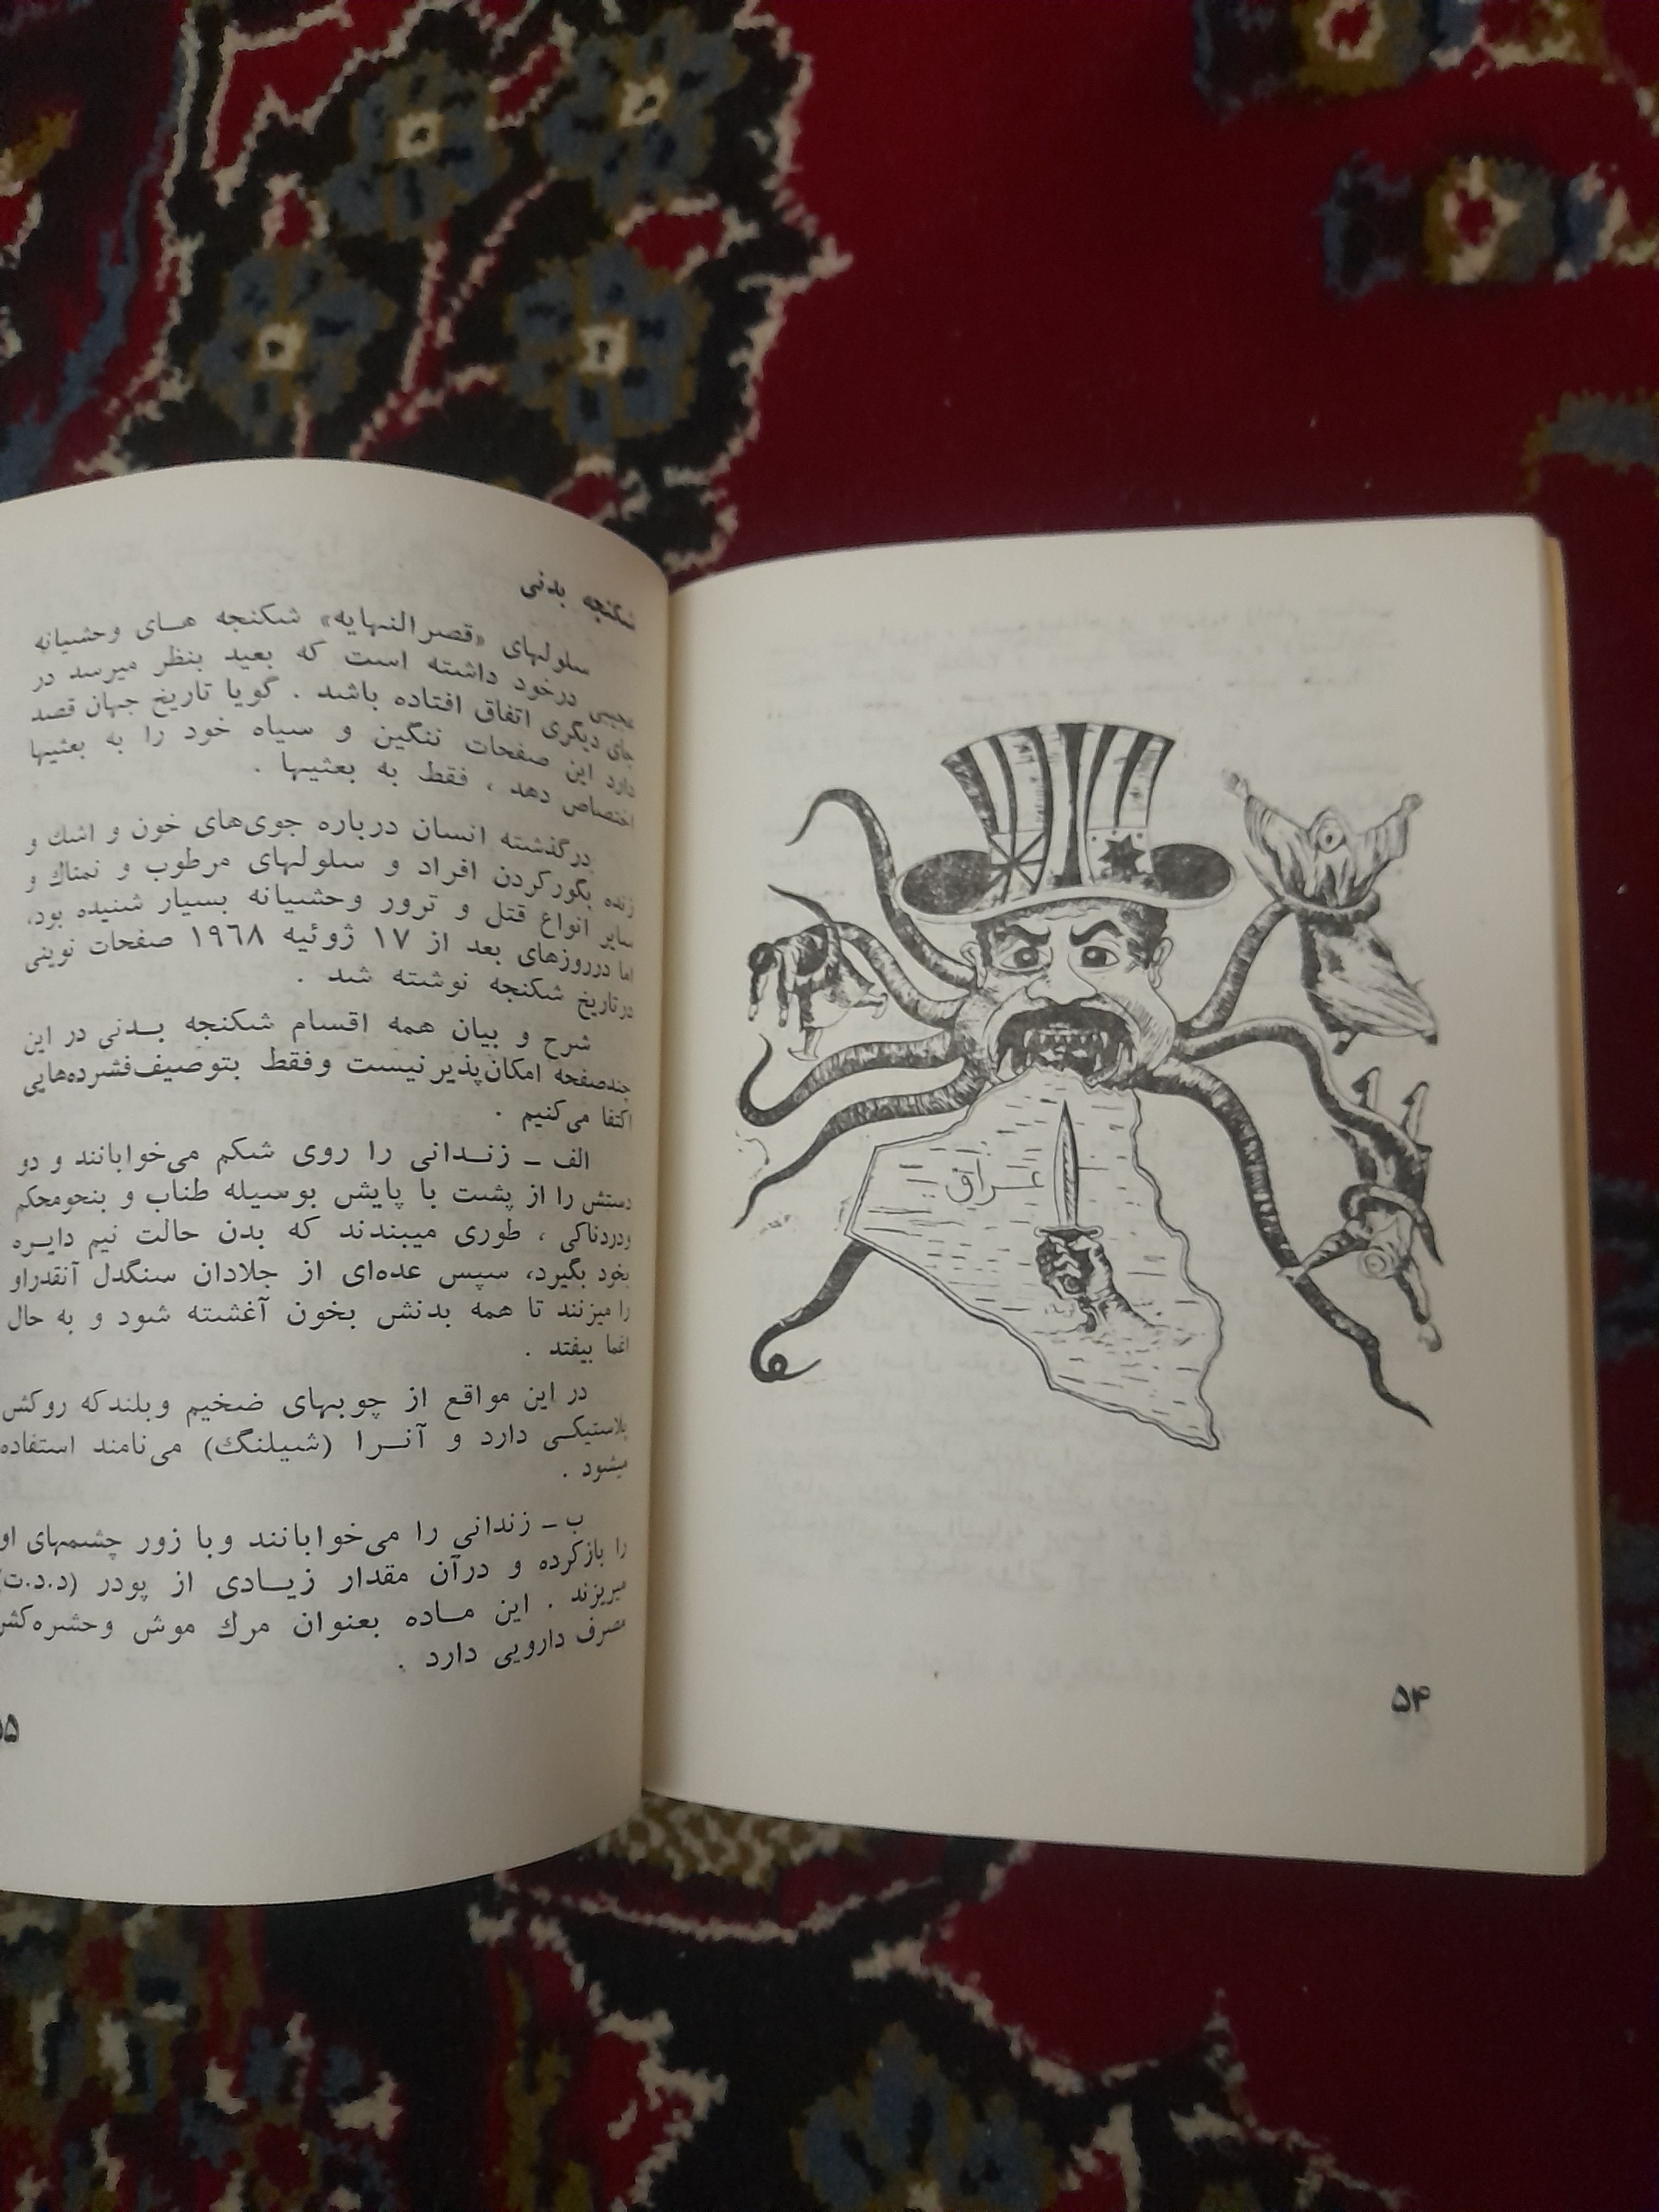 عراق
۵۴
شکنجه بدنی
سلولهای «قصرالنهایه» شکنجه هــای وحشیانه
عجیبی درخود داشته است که بعید بنظر میرسد در
جای دیگری اتفاق افتاده باشد . گویا تاریخ جهان قصد
دارد این صفحات ننگین و سیاه خود را به بعثیها
اختصاص دهد ، فقط به بعثیها .
درگذشته انسان درباره جوی‌های خون و اشك و
زنده بگورکردن افراد و سلولهای مرطوب و نمناك و
سایر انواع قتل و ترور وحشیانه بسیار شنیده بود،
اما درروزهای بعد از ۱۷ ژوئیه ۱۹٦۸ صفحات نوینی
درتاریخ شکنجه نوشته شد .
شرح و بیان همه اقسام شکنجه بــدنی در این
چندصفحه امکان‌پذیرنیست وفقط بتوصیف‌فشرده‌هایی
اکتفا می‌کنیم .
الف ــ زنــدانی را روی شکم می‌خوابانند و دو
دستش را از پشت با پایش بوسیله طناب و بنحومحکم
ودردناکی ، طوری میبندند که بدن حالت نیم دایــره
بخود بگیرد، سپس عده‌ای از جلادان سنگدل آنقدراو
را میزنند تا همه بدنش بخون آغشته شود و به حال
اغما بیفتد .
در این مواقع از چوبهای ضخیم وبلندکه روکش
پلاستیکــی دارد و آنــرا (شیلنگ) می‌نامند استفاده
میشود .
ب ــ زندانی را می‌خوابانند وبا زور چشمهای او
را بازکرده و درآن مقدار زیــادی از پودر (د.د.ت)
میریزند . این مــاده بعنوان مرك موش وحشره‌کش
مصرف دارویی دارد .
۵۵